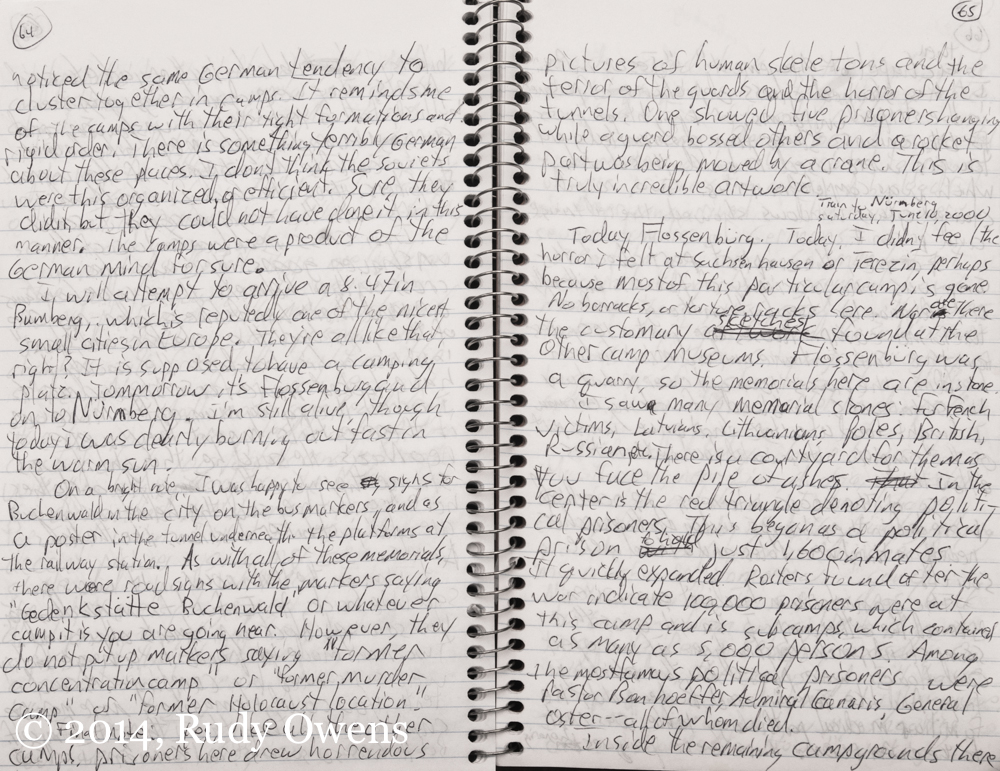 64
noticed the same German tendency to
cluster together in camps. It reminds me
of the camps with their tight formations and
rigid order. There is something terribly German
about these places. I don't think the Soviets
were this organized or efficient. Sure, they
did it, but they could not have done it in this
manner. The camps were a product of the
German mind for sure.
I will attempt to arrive a 8:47 in
Bumberg, which is reputedly one of the nicest
small cities in Europe. They're all like that,
right? It is supposed to have a camping
platz. Tommorrow it's Flossenburg and
on to Nürnberg. I'm still alive, though
today I was clearly burning out fast in
the warm sun.
On a bright note, I was happy to see signs for
Buchenwald in the city on the bus markers, and as
a poster in the tunnel underneath the platforms at
the railway station. As with all of these memorials,
there were road signs with the markers saying
"Gedenkstätte Buchenwald" or whatever
camp it is you are going near. However, they
do not put up markers saying "former
concentration camp" or "former murder
camp" or "former Holocaust location."
camps, prisoners here drew horrendous
© 2014, Rudy Owens
65
pictures of human skeletons and the
terror of the guards and the horror of the
tunnels. One showed five prisoners hanging
while a guard bossed others and a rocket
part was being moved by a crane. This is
truly incredible artwork
Train to Nürnberg
Saturday, June 10, 2000
Today Flossenbürg. Today, I didn't feel the
horror I felt at Sachsenhausen or Terezin, perhaps
because most of this particular camp is gone
No barracks, or torture racks here. Nor are there
the customary sketches found at the
other camp museums. Flossenbürg was
a quarry, so the memorials here are in stone.
I saw many memorial stones: for French
victims, Latvians, Lithuanians, Poles, British,
Russian etc. There is a courtyard for them as
you face the pile of ashes. In the
center is the red triangle denoting politi-
cal prisoners. This began as a political
prison just 1,600 inmates.
It quickly expanded. Rosters found after the
war indicate 100,000 prisoners were at
this camp and is subcamps, which contained
as many as 5,000 persons. Among
the most famous political prisoners were
Pastor Bonhoeffer, Admiral Canaris, General
Oster -- all of whom died.
Inside the remaining campgrounds there